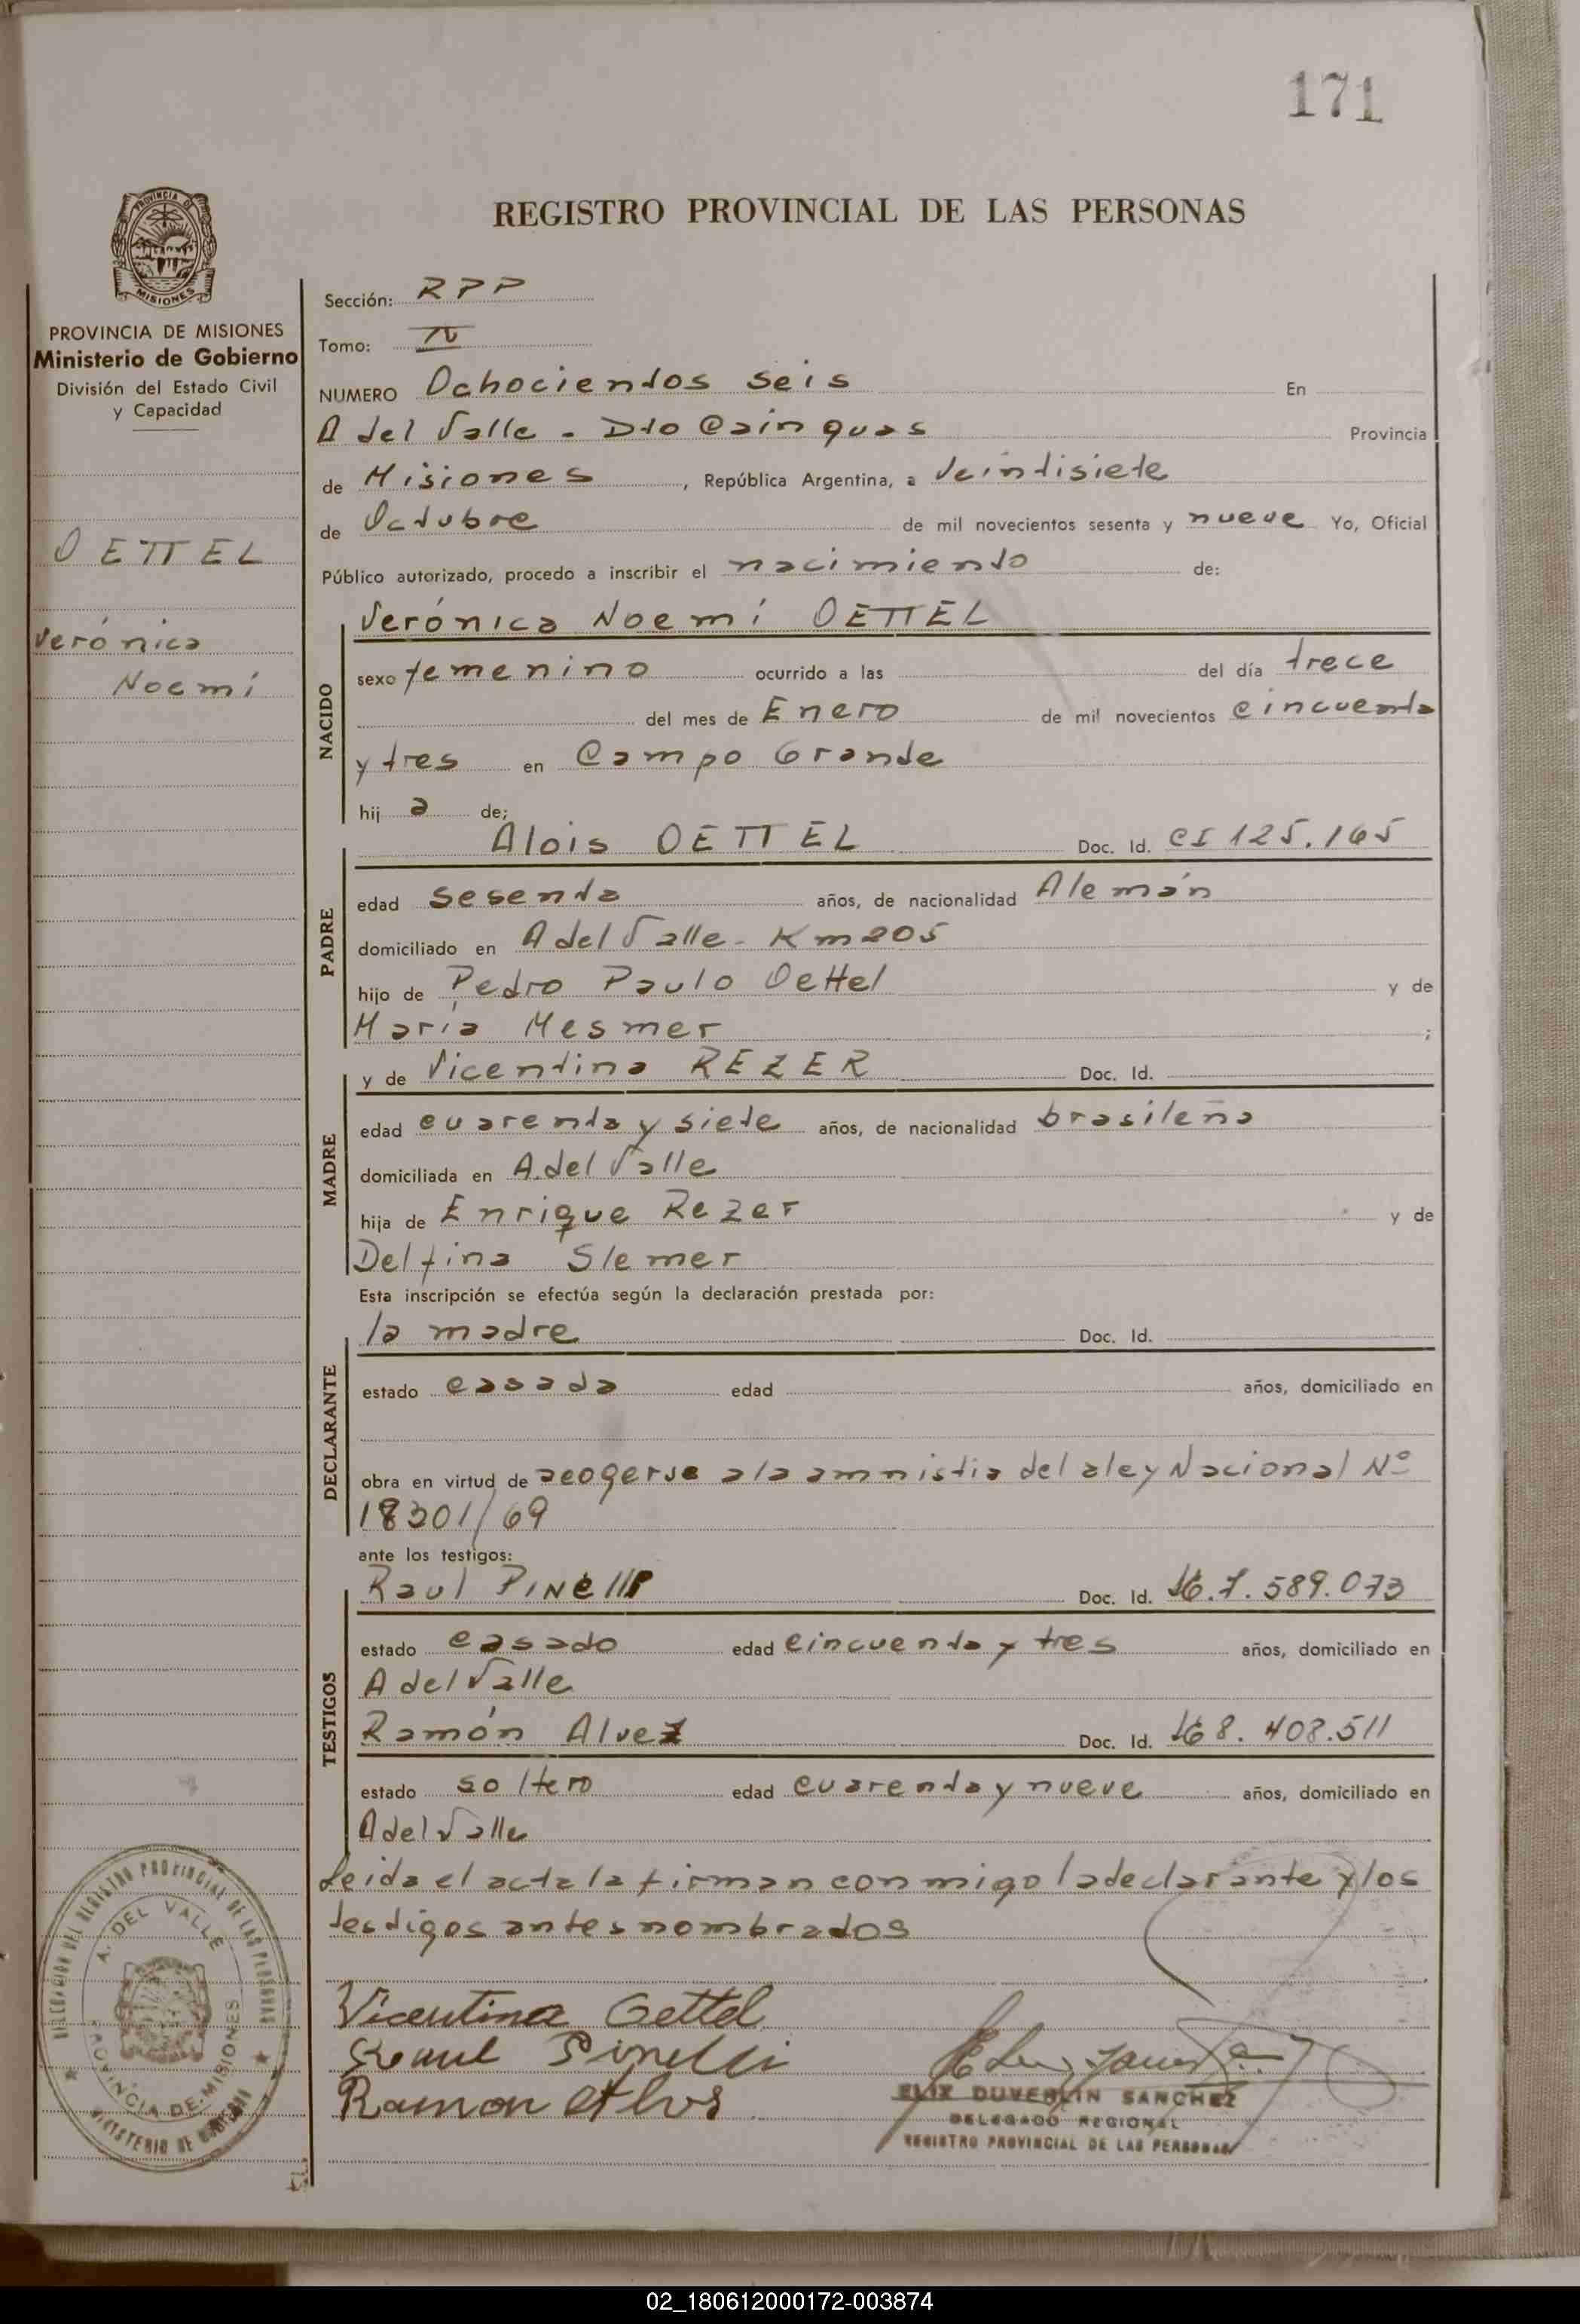 171
REGISTRO PROVINCIAL DE LAS PERSONAS
PROVINCIA DE
MISIONES
PROVINCIA DE MISIONES
Ministerio de Gobierno
División del Estado Civil
y Capacidad
OETTEL
Verónica
Noemí
Sección: RPP
Tomo:
NUMERO Ochocientos seis En
A del Valle - Dto Cainguas Provincia
de Misiones, República Argentina, a Veintisiete
de Octubre de mil novecientos sesenta y nueve Yo, Oficial
Público autorizado, procedo a inscribir el nacimiento de:
NACIDO
Verónica Noemí OETTEL
sexo femenino ocurrido a las del día trece
del mes de Enero de mil novecientos cincuenta
y tres en Campo Grande
hij a de;
PADRE
Alois OETTEL Doc. Id. CI 125.165
edad sesenta años, de nacionalidad Alemán
domiciliado en A del Valle - Km 205
hijo de Pedro Paulo Oettel y de
María Mesmer ;
MADRE
y de Vicentina REZER Doc. Id.
edad cuarenta y siete años, de nacionalidad brasileña
domiciliada en A. del Valle
hija de Enrique Rezer y de
Delfina Slemer
Esta inscripción se efectúa según la declaración prestada por:
DECLARANTE
la madre Doc. Id.
estado casada edad años, domiciliado en
obra en virtud de acogerse a la amnistia del aley Nacional Nº
18301/69
ante los testigos:
TESTIGOS
Raul PINElli Doc. Id. 7.589.073
estado casado edad cincuenta y tres años, domiciliado en
A del Valle
Ramón Alvez Doc. Id. 8.408.511
estado soltero edad cuarenta y nueve años, domiciliado en
A del Valle
Leida el acta la firman conmigo la declarante y los
testigos antes nombrados
Vicentina Oettel
Raul Pinelli
Ramon
DELEGACION DEL REGISTRO PROVINCIAL DE LAS PERSONAS
A. DEL VALLE
PROVINCIA DE MISIONES
MINISTERIO DE GOBIERNO
ELIX DUVERLIN SANCHEZ
DELEGADO REGIONAL
REGISTRO PROVINCIAL DE LAS PERSONAS
02_180612000172-003874